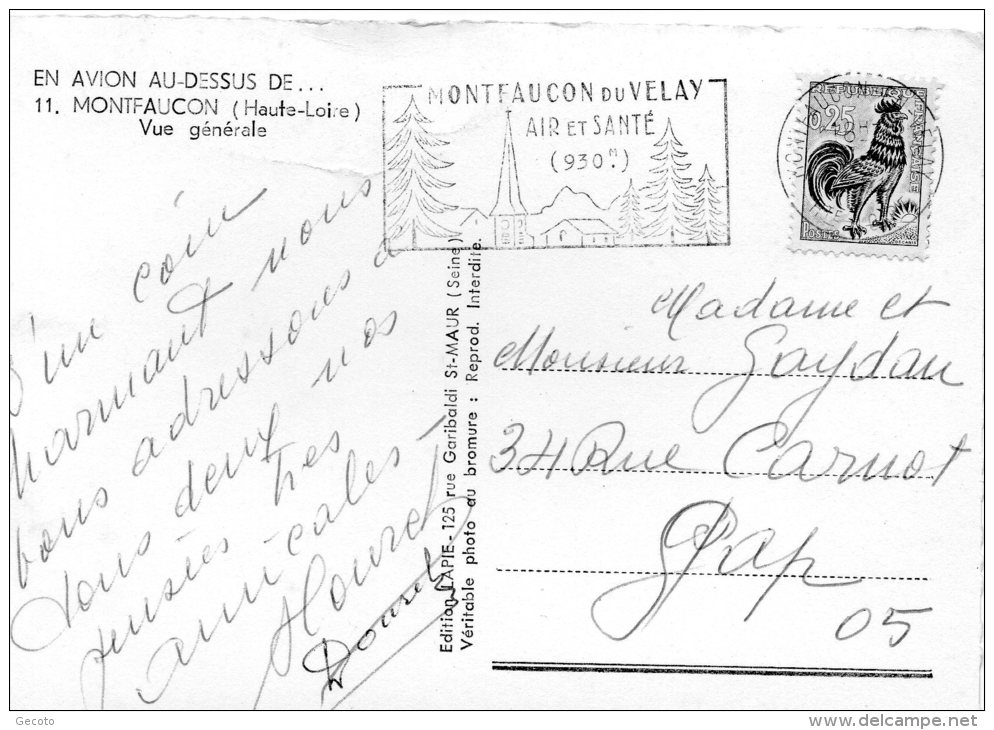 EN AVION AU-DESSUS DE...
11. MONTFAUCON (Haute-Loire)
Vue générale
MONTFAUCON DU VELAY
AIR ET SANTÉ
(930 M.)
0,25
REPUBLIQUE FRANÇAISE
POSTES
D'un coin
charmant nous
vous adressons à
tous deux nos
pensées très
amicales
Edition LAPIE - 125 rue Garibaldi St-MAUR (Seine)
Véritable photo au bromure : Reprod. Interdite.
Madame et
Monsieur Gaydan
34 Rue Carnot
Gap
05
Gecoto
www.delcampe.net